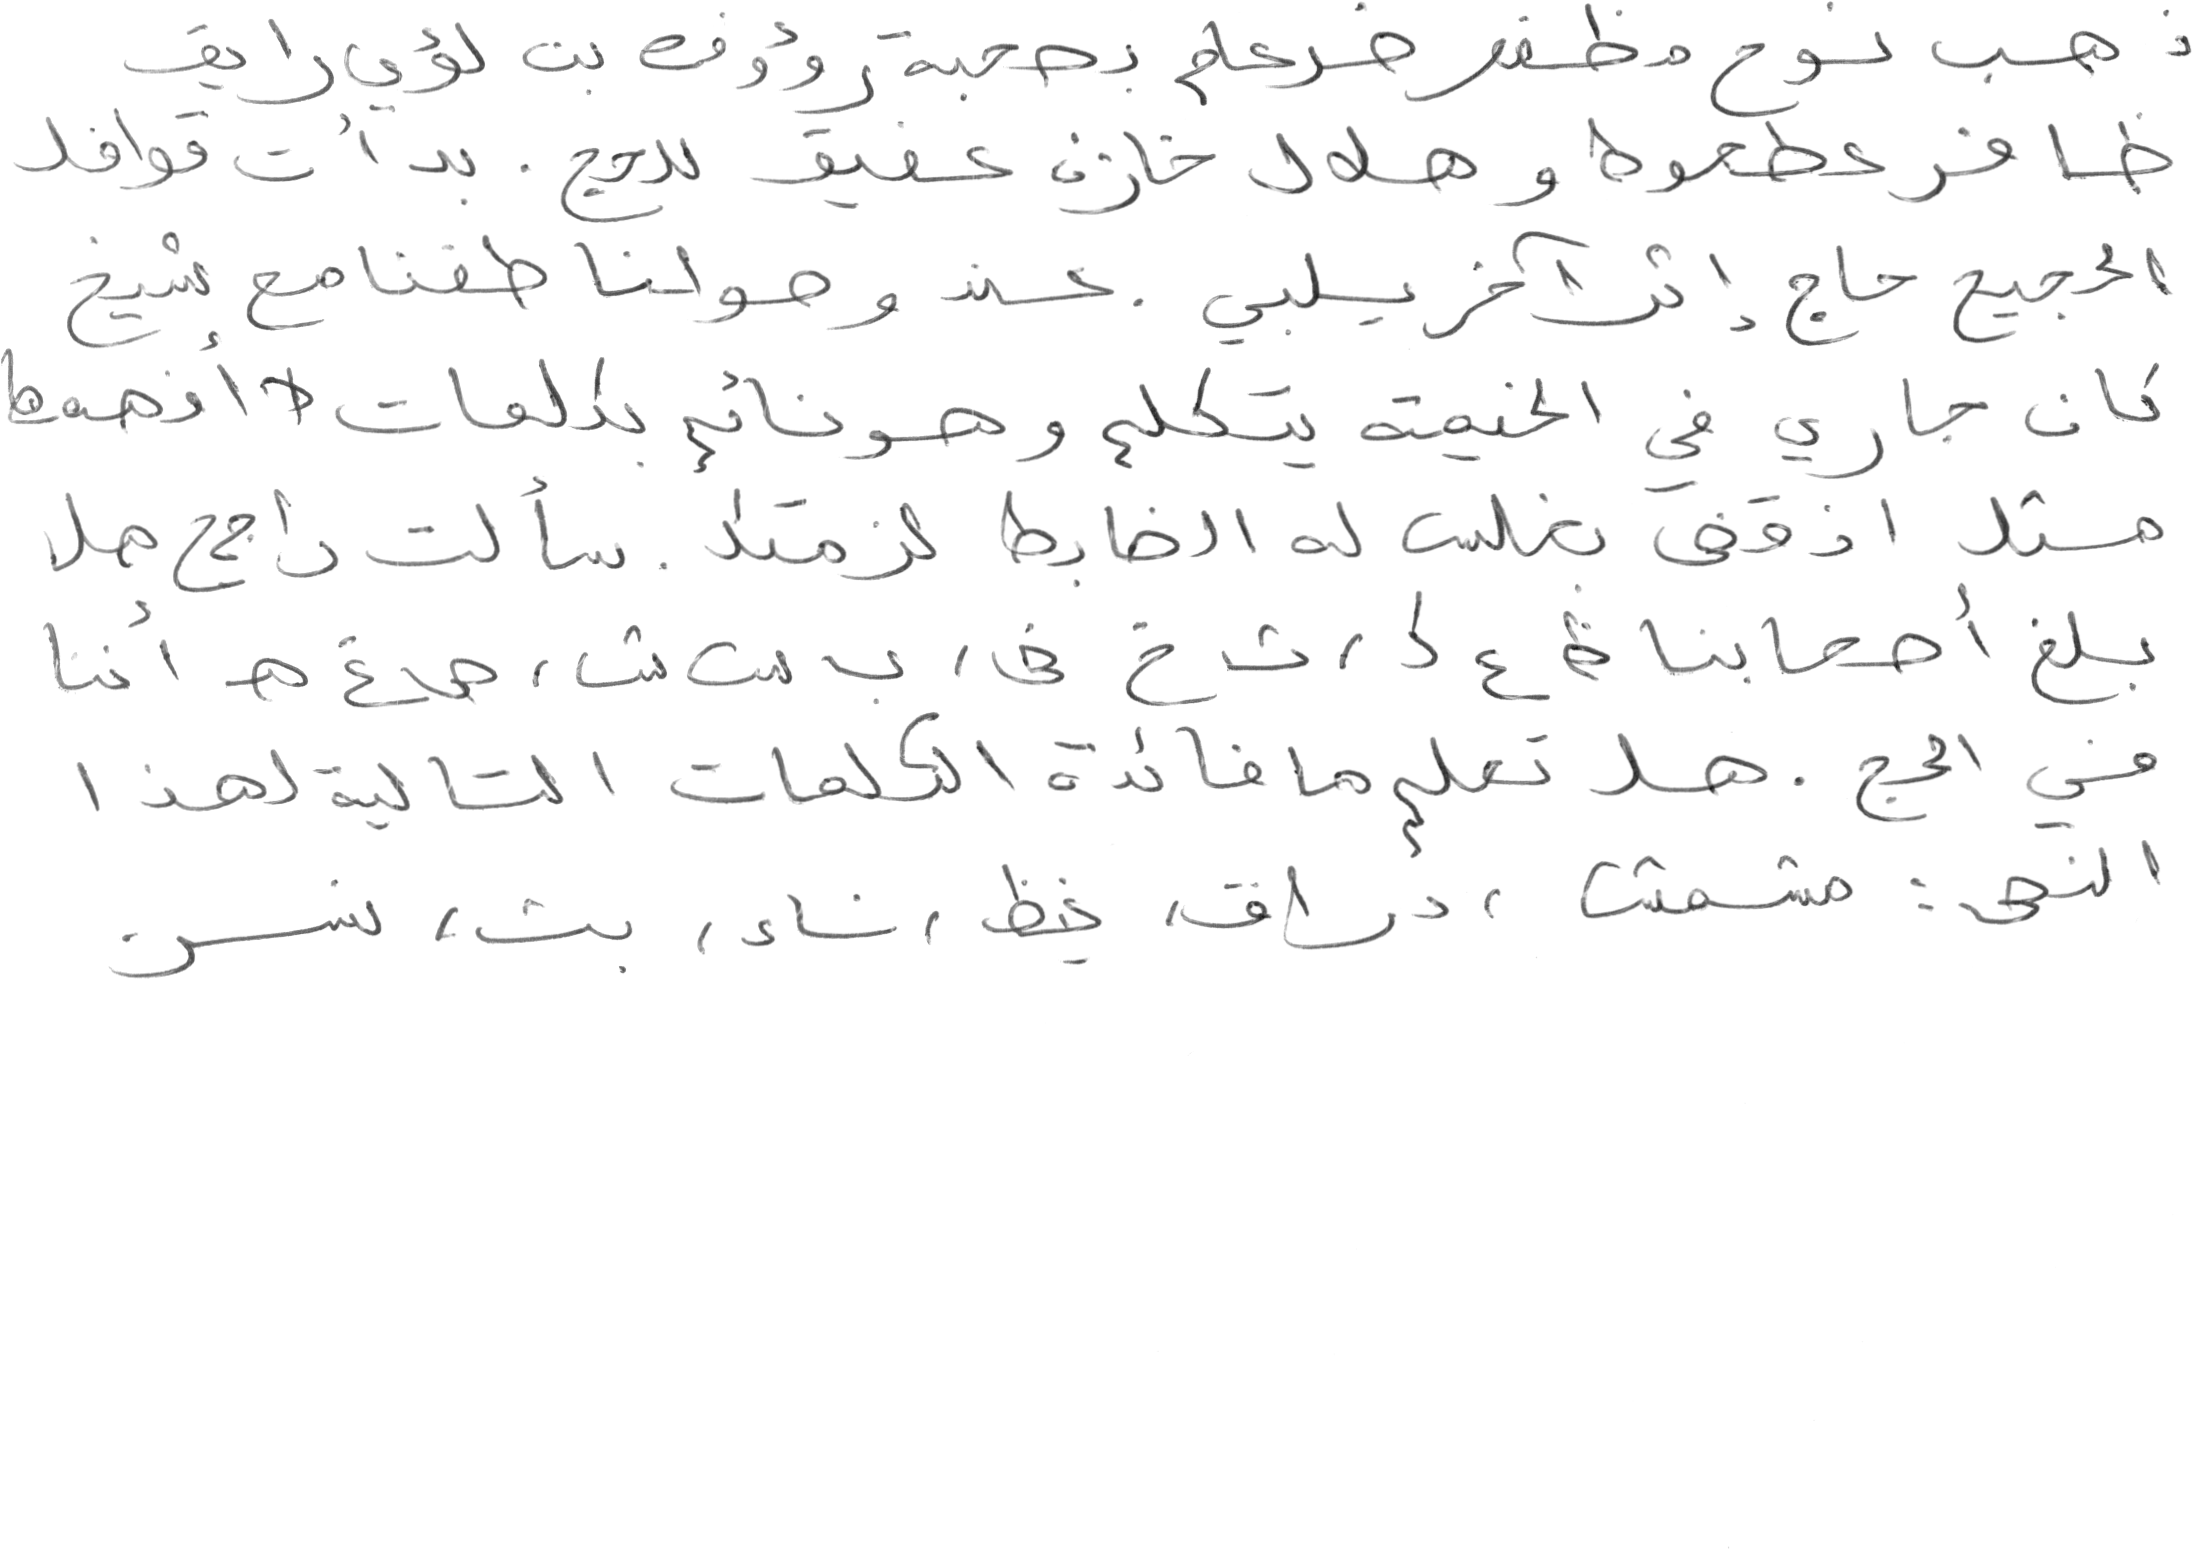 ذهب نوح مظفر ضرغام بصحبة رؤوف بن لؤي رايق
ظافر عطعوط و هلال خازن عفيق للحج . بدأت قوافل
الحجيج حاج إثر آخر يلبي . عند وصولنا طفنا مع شيخ
كان جاري في الخيمة يتكلم وهو نائم بكلمات لا أفهمها
مثل اذ قض بغلس له الضابط لزمتك . سألت راجح هل
بلغ أصحابنا ظ ع ك ، ث خ ض ، ب س ش ، ص غ ه أننا
في الحج . هل تعلم ما فائدة الكلمات التالية لهذا
النص : مشمش ، دراق ، غيظ ، ناء ، بث ، نسر .